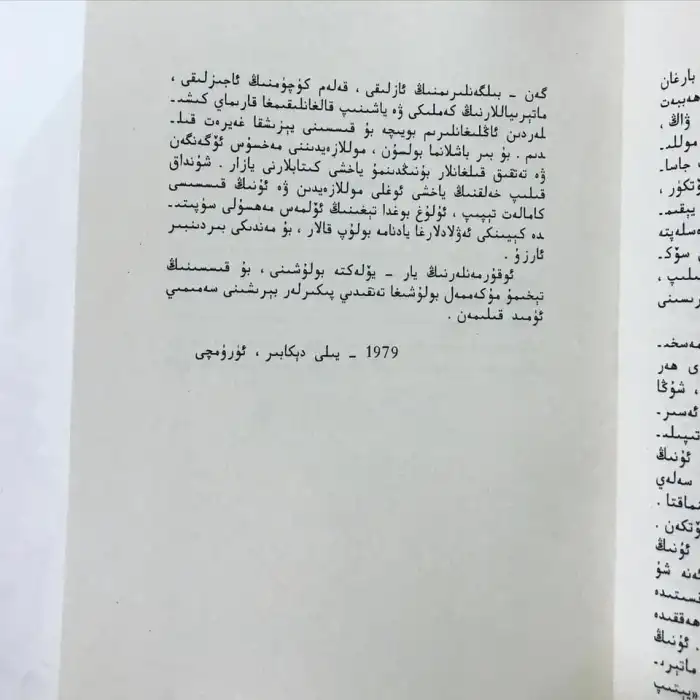 گەن - بىلگەنلىرىمنىڭ ئازلىقى، قەلەم كۈچۈمنىڭ ئاجىزلىقى،
ماتېرىياللارنىڭ كەملىكى ۋە ياشىنىپ قالغانلىقىمغا قارىماي كىشى-
لەردىن ئاڭلىغانلىرىم بويىچە بۇ قىسسىنى يېزىشقا غەيرەت قىل-
دىم. بۇ بىر باشلانما بولسۇن، موللازەيدىننى مەخسۇس ئۆگەنگەن
ۋە تەتقىق قىلغانلار بۇنىڭدىنمۇ ياخشى كىتابلارنى يازار. شۇنداق
قىلىپ خەلقنىڭ ياخشى ئوغلى موللازەيدىن ۋە ئۇنىڭ قىسسىسى
كامالەت تېپىپ، ئۇلۇغ بوغدا تېغىنىڭ ئۆلمەس مەھسۇلى سۈپىتى-
دە كېيىنكى ئەۋلادلارغا يادنامە بولۇپ قالار، بۇ مەندىكى بىردىنبىر
ئارزۇ.
ئوقۇرمەنلەرنىڭ يار - يۆلەكتە بولۇشىنى، بۇ قىسسىنىڭ
تېخىمۇ مۇكەممەل بولۇشىغا تەنقىدىي پىكىرلەر بېرىشىنى سەمىمىي
ئۈمىد قىلىمەن.
1979 - يىلى دېكابىر، ئۈرۈمچى
بارغان
ۋاڭ،
جاسا-
يېقىم-
ى ھەر
، شۇڭا
ئەسىر-
تېپىلى-
ئۇنىڭ
سەلەي
ئۇنىڭ
ئەنە شۇ
. ئۇنىڭ
ماتېرى-